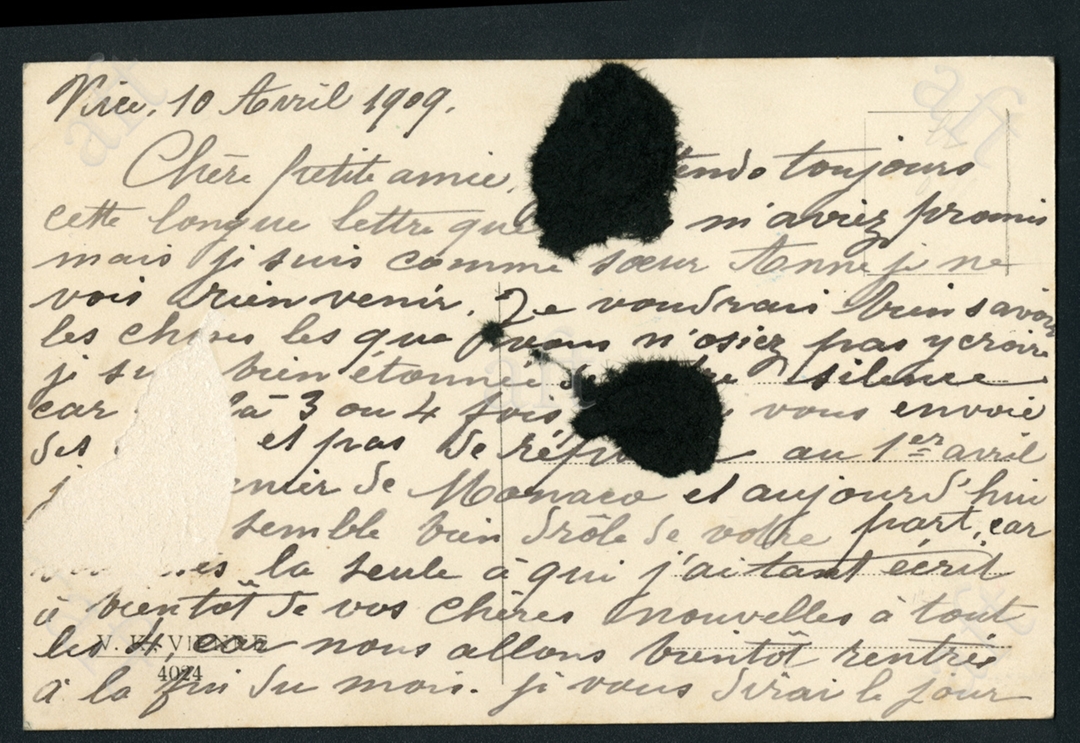 Nice, 10 Avril 1909.
Chère petite amie, tends toujours
cette longue lettre que m'aviez promis
mais je suis comme sœur Anne je ne
vois rien venir. Je voudrais bien savoir
les choses les que vous n'osiez pas y croire
je bien étonnée silence
car 3 ou 4 fois vous envoie
des et pas de au 1er avril
de Monaco et aujourd'hui
semble bien drôle de votre part, car
la seule à qui j'ai tant écrit
à bientôt de vos chères nouvelles à tout
les 4, car nous allons bientôt rentrés
V. K. VIENNE
4024
à la fin du mois. je vous dirai le jour
aft
aft
aft
aft
aft